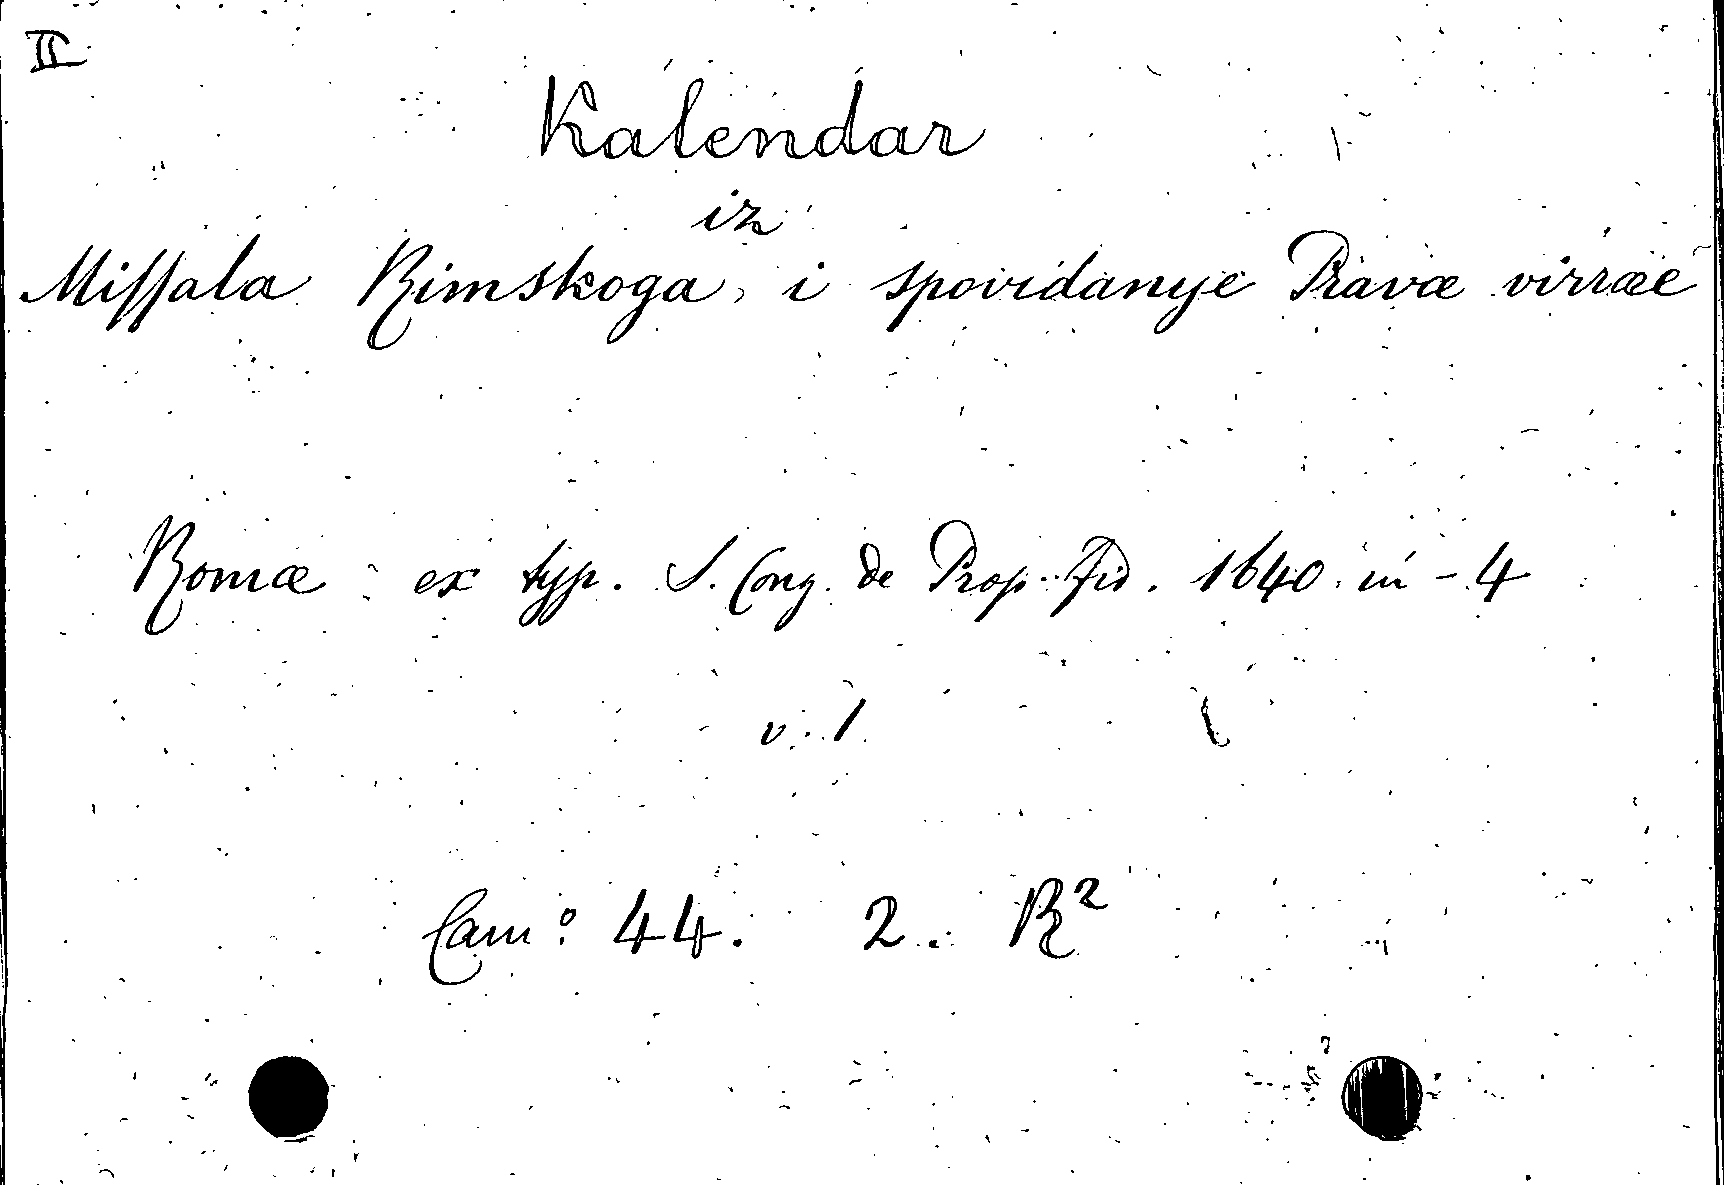 II
Kalendar
iz
Missala Rimskoga, i spovidanye Pravæ virræe
Romæ ex typ. S. Cong. de Prop. Fid. 1640. in-4
v. 1
Cam:º 44. 2. R²